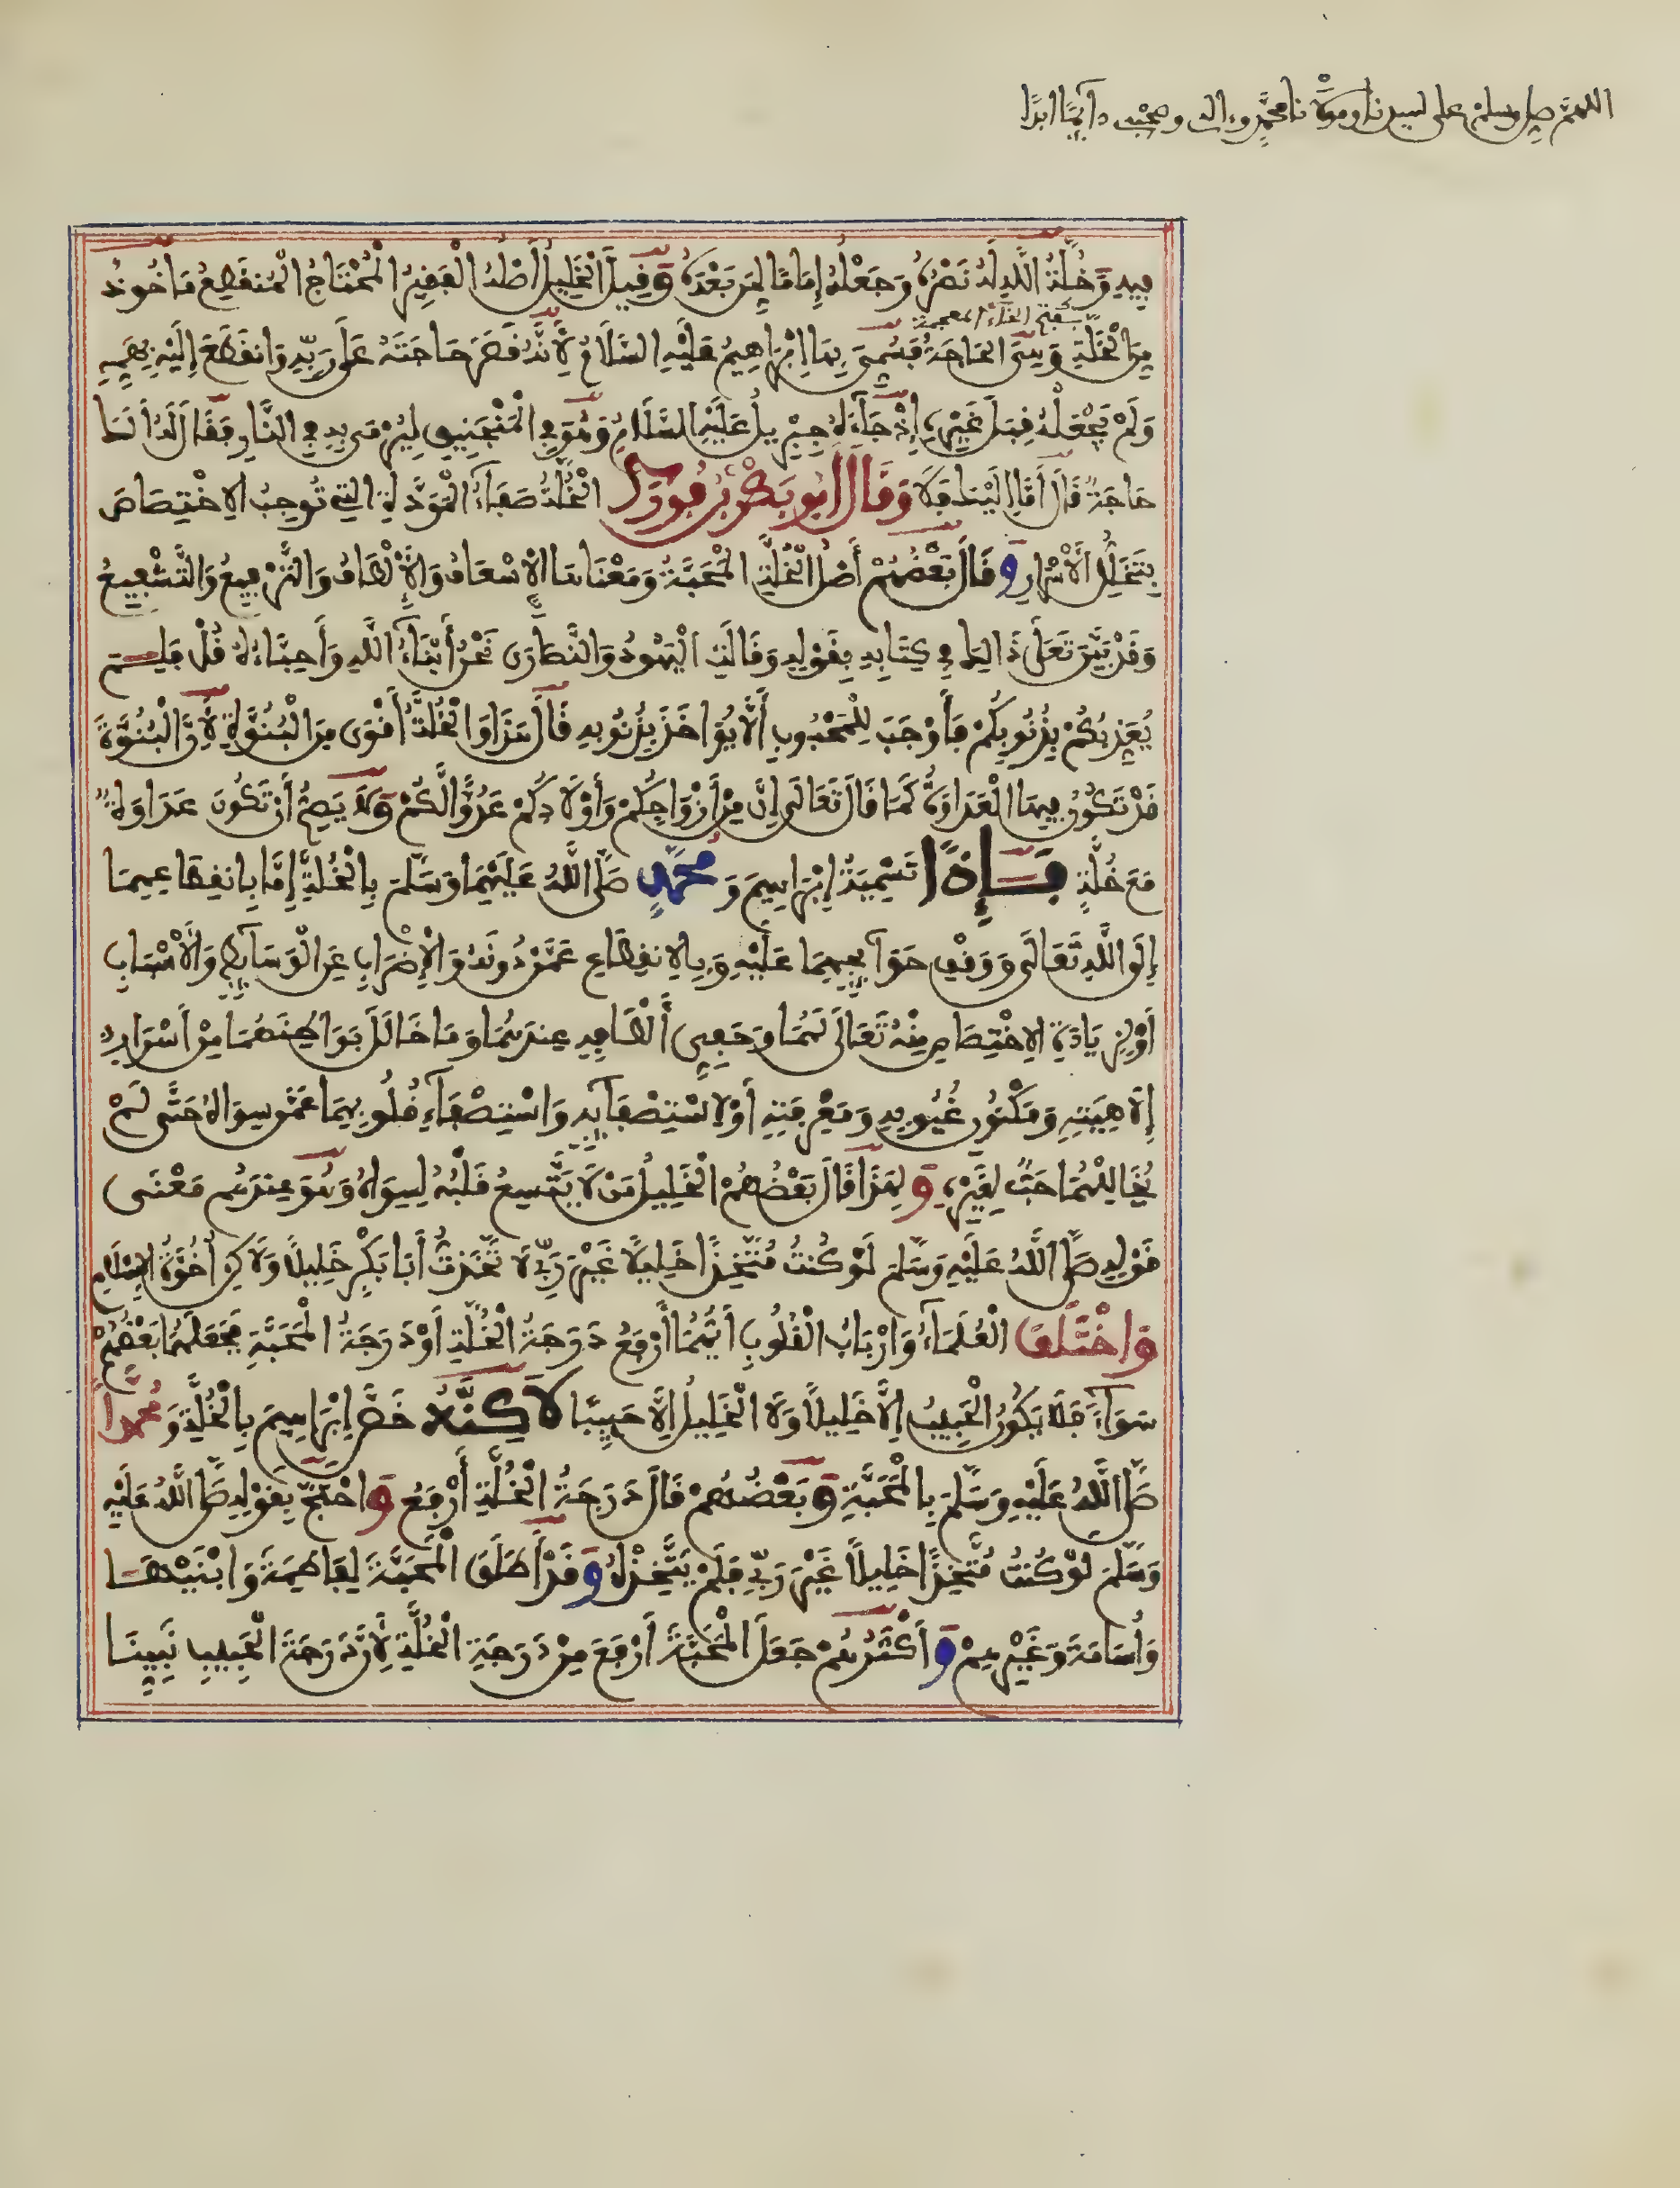 اللهم صل وسلم على سيدنا ومولانا محمد وءاله وصحبه دآيما ابدا
فِيهِ وَخُلَّةُ اللَّهِ لَهُ نَصْرُهُ وَجَعْلُهُ إِمَامًا لِمَن بَعْدَهُ وَقِيلَ الْخَلِيلُ أَصْلُهُ الْفَقِيرُ الْمُحْتَاجُ الْمُنقَطِعُ مَاخُوذٌ
بفتح الخآء المعجمة
مِنَ الْخَلَّةِ وَهِيَ الْحَاجَةُ فَسُمِّيَ بِهَا إِبْرَاهِيمُ عَلَيْهِ السَّلَامُ لِأَنَّهُ قَصَرَ حَاجَتَهُ عَلَى رَبِّهِ وَانقَطَعَ إِلَيْهِ بِهَمِّهِ
وَلَمْ يَجْعَلْهُ قِبَلَ غَيْرِهِ إِذْ جَآءَهُ جِبْرِيلُ عَلَيْهِ السَّلَامُ وَهُوَ فِي الْمَنْجَنِيقِ لِيُرْمَى بِهِ فِي النَّارِ فَقَالَ أَلَكَ
حَاجَةٌ قَالَ أَمَّا إِلَيْكَ فَلَا وَقَالَ أَبُو بَكْرِ بْنُ فُورَكَ الْخُلَّةُ صَفَآءُ الْمَوَدَّةِ الَّتِي تُوجِبُ الِاخْتِصَاصَ
بِتَخَلُّلِ الْأَسْرَارِ وَقَالَ بَعْضُهُمْ أَصْلُ الْخُلَّةِ الْمَحَبَّةُ وَمَعْنَاهَا الْإِسْعَافُ وَالْإِلْطَافُ وَالتَّرْفِيعُ وَالتَّشْفِيعُ
وَقَدْ بَيَّنَ تَعَلَى ذَالِكَ فِي كِتَابِهِ بِقَوْلِهِ وَقَالَتِ الْيَهُودُ وَالنَّصَارَى نَحْنُ أَبْنَآءُ اللَّهِ وَأَحِبَّاءُهُ قُلْ فَلِمَ
يُعَذِّبُكُمْ بِذُنُوبِكُمْ فَأَوْجَبَ لِلْمَحْبُوبِ أَلَّا يُوَاخَذَ بِذُنُوبِهِ قَالَ هَذَا وَالْخُلَّةُ أَقْوَى مِنَ الْبُنُوَّةِ لِأَنَّ الْبُنُوَّةَ
قَدْ تَكُونُ فِيهَا الْعَدَاوَةُ كَمَا قَالَ تَعَالَى إِنَّ مِنْ أَزْوَاجِكُمْ وَأَوْلَادِكُمْ عَدُوًّا لَّكُمْ وَلَا يَصِحُّ أَنْ تَكُونَ عَدَاوَةٌ
مَعَ خُلَّةٍ فَإِذًا تَسْمِيَةُ إِبْرَاهِيمَ وَمُحَمَّدٍ صَلَّى اللَّهُ عَلَيْهِمَا وَسَلَّمَ بِالْخُلَّةِ إِمَّا بِانقِطَاعِهِمَا
إِلَى اللَّهِ تَعَالَى وَوَقْفِ حَوَآيِجِهِمَا عَلَيْهِ وَبِالِانقِطَاعِ عَمَّنْ دُونَهُ وَالْإِضْرَابِ عَنِ الْوَسَآيِطِ وَالْأَسْبَابِ
أَوْ لِزِيَادَةِ الِاخْتِصَاصِ مِنْهُ تَعَالَى لَهُمَا وَخَفِيِّ أَلْطَافِهِ عِندَهُمَا وَمَا خَالَلَ بَوَاطِنَهُمَا مِنْ أَسْرَارِ
إِلَاهِيَتِهِ وَمَكْنُونِ غُيُوبِهِ وَمَعْرِفَتِهِ أَوْ لِاسْتِصْفَآيِهِ وَاسْتِصْفَآءِ قُلُوبِهِمَا عَمَّن سِوَاهُ حَتَّى لَمْ
يُخَالِلْهُمَا حُبٌّ لِغَيْرِهِ وَلِهَذَا قَالَ بَعْضُهُمْ الْخَلِيلُ مَنْ لَا يَتَّسِعُ قَلْبُهُ لِسِوَاهُ وَهُوَ عِندَهُم مَعْنَى
قَوْلِهِ صَلَّى اللَّهُ عَلَيْهِ وَسَلَّمَ لَوْ كُنتُ مُتَّخِذًا خَلِيلًا غَيْرَ رَبِّي لَاتَّخَذتُ أَبَا بَكْرٍ خَلِيلًا وَلَاكِنْ أُخُوَّةُ الْإِسْلَامِ
وَاخْتَلَفَ الْعُلَمَآءُ وَأَرْبَابُ الْقُلُوبِ أَيُّهُمَا أَرْفَعُ دَرَجَةُ الْخُلَّةِ أَوْ دَرَجَةُ الْمَحَبَّةِ فَجَعَلَهُمَا بَعْضُهُمْ
سَوَآءً فَلَا يَكُونُ الْحَبِيبُ إِلَّا خَلِيلًا وَلَا الْخَلِيلُ إِلَّا حَبِيبًا لَاكِنَّهُ خَصَّ إِبْرَاهِيمَ بِالْخُلَّةِ وَمُحَمَّدًا
صَلَّى اللَّهُ عَلَيْهِ وَسَلَّمَ بِالْمَحَبَّةِ وَبَعْضُهُمْ قَالَ دَرَجَةُ الْخُلَّةِ أَرْفَعُ وَاحْتَجَّ بِقَوْلِهِ صَلَّى اللَّهُ عَلَيْهِ
وَسَلَّمَ لَوْ كُنتُ مُتَّخِذًا خَلِيلًا غَيْرَ رَبِّي فَلَمْ يَتَّخِذْهُ وَقَدْ أَطْلَقَ الْمَحَبَّةَ لِفَاطِمَةَ وَابْنَيْهَا
وَأُسَامَةَ وَغَيْرِهِمْ وَأَكْثَرُهُمْ جَعَلَ الْمَحَبَّةَ أَرْفَعَ مِنْ دَرَجَةِ الْخُلَّةِ لِأَنَّ دَرَجَةَ الْحَبِيبِ نَبِيِّنَا